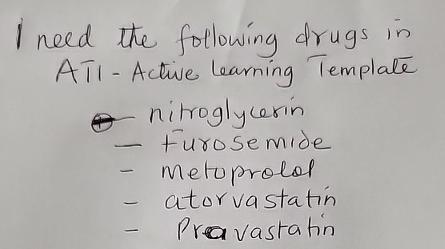 I need the following drugs in
ATI - Active Learning Template
- nitroglycerin
- Furosemide
- Metoprolol
- atorvastatin
- Pravastatin